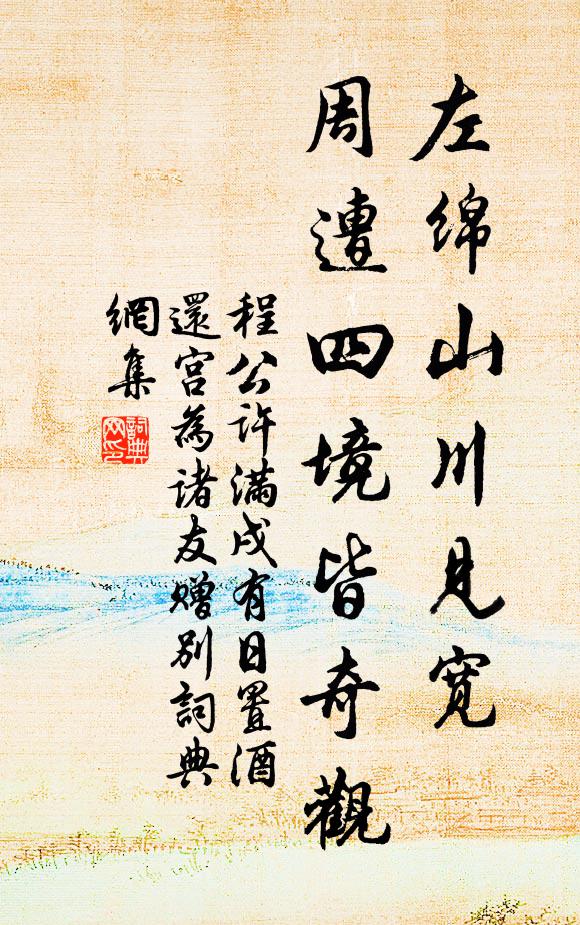 左绵山川見寬
周遭四境皆奇觀
程公許滿戍有日置酒
還宫為諸友贈別詞典
網集
詞典网印